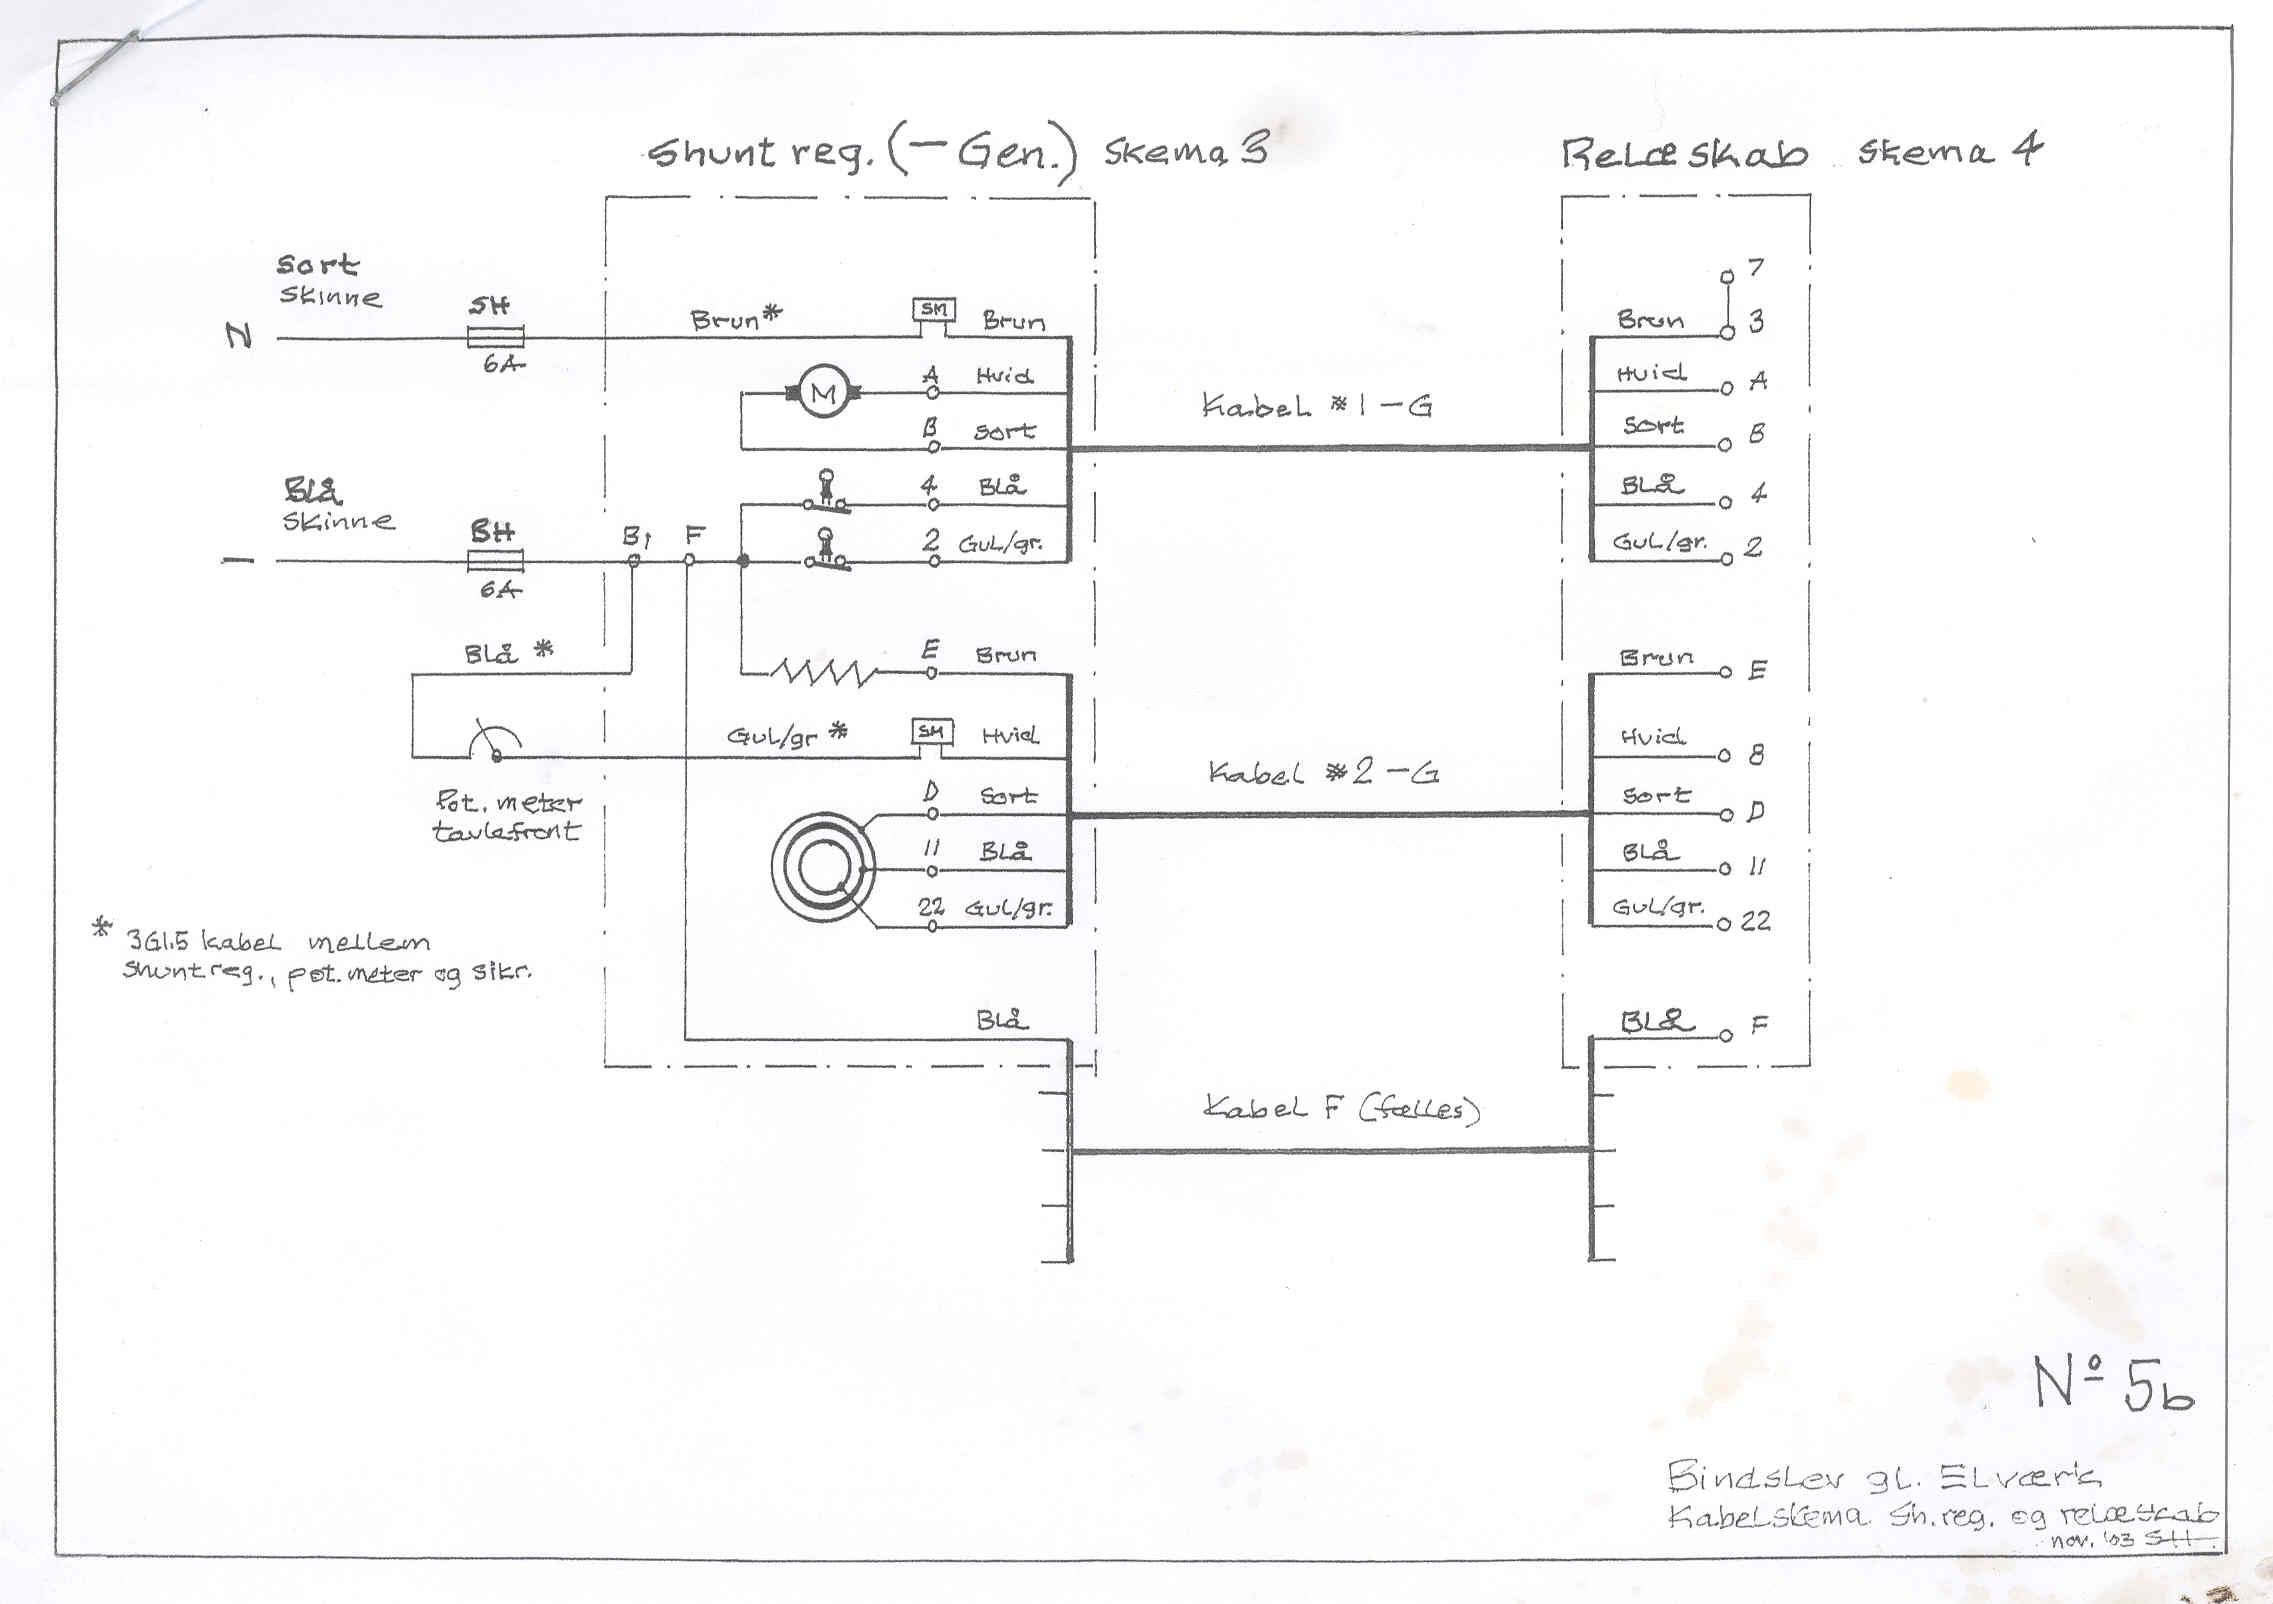 Shunt reg. (– Gen.) Skema 3
Relæskab Skema 4
Sort
Skinne
N
SH
6A
Brun*
SM
Brun
M
A
Hvid
B
Sort
4
Blå
Blå
Skinne
–
BH
6A
B1
F
2
Gul/gr.
Blå *
E
Brun
Gul/gr *
SM
Hvid
Pot. meter
tavlefront
D
Sort
11
Blå
22
Gul/gr.
* 3G1.5 kabel mellem
Shuntreg., pot.meter og sikr.
Blå
Kabel #1 – G
Kabel #2 – G
Kabel F (fælles)
7
Brun 3
Hvid A
Sort B
Blå 4
Gul/gr. 2
Brun E
Hvid 8
Sort D
Blå 11
Gul/gr. 22
Blå F
Nº 5b
Bindslev gl. Elværk
Kabelskema Sh.reg. og relæskab
nov. '03 SH